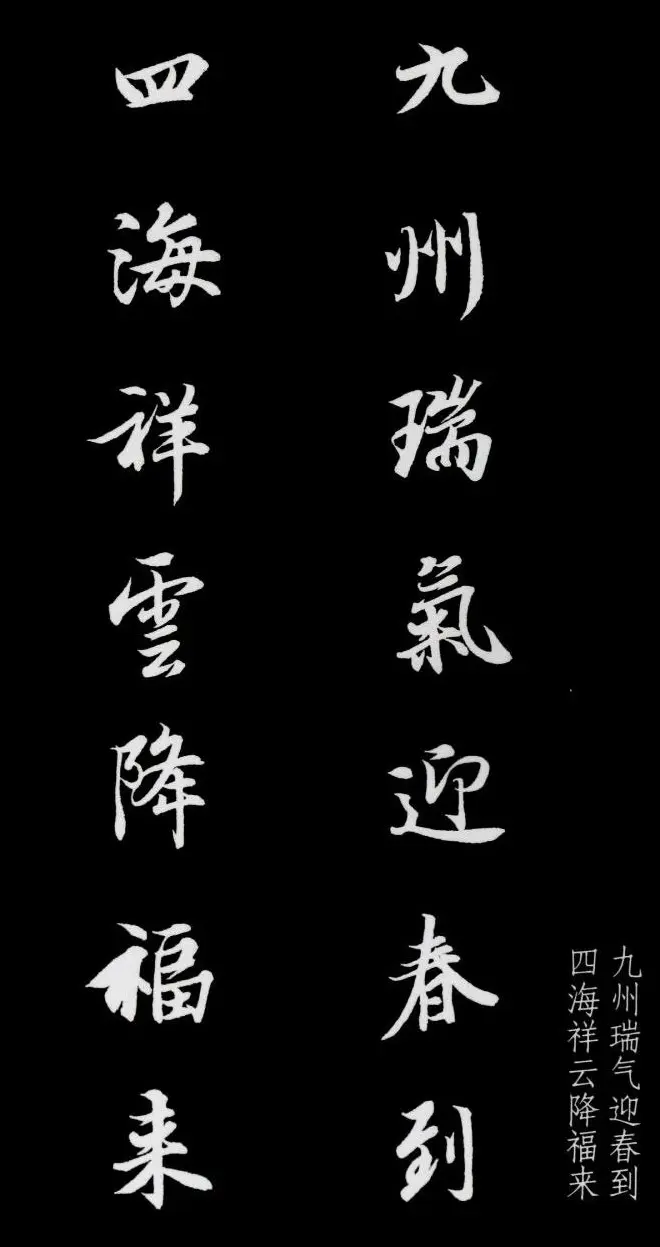 九州瑞氣迎春到
四海祥雲降福来
九州瑞气迎春到
四海祥云降福来